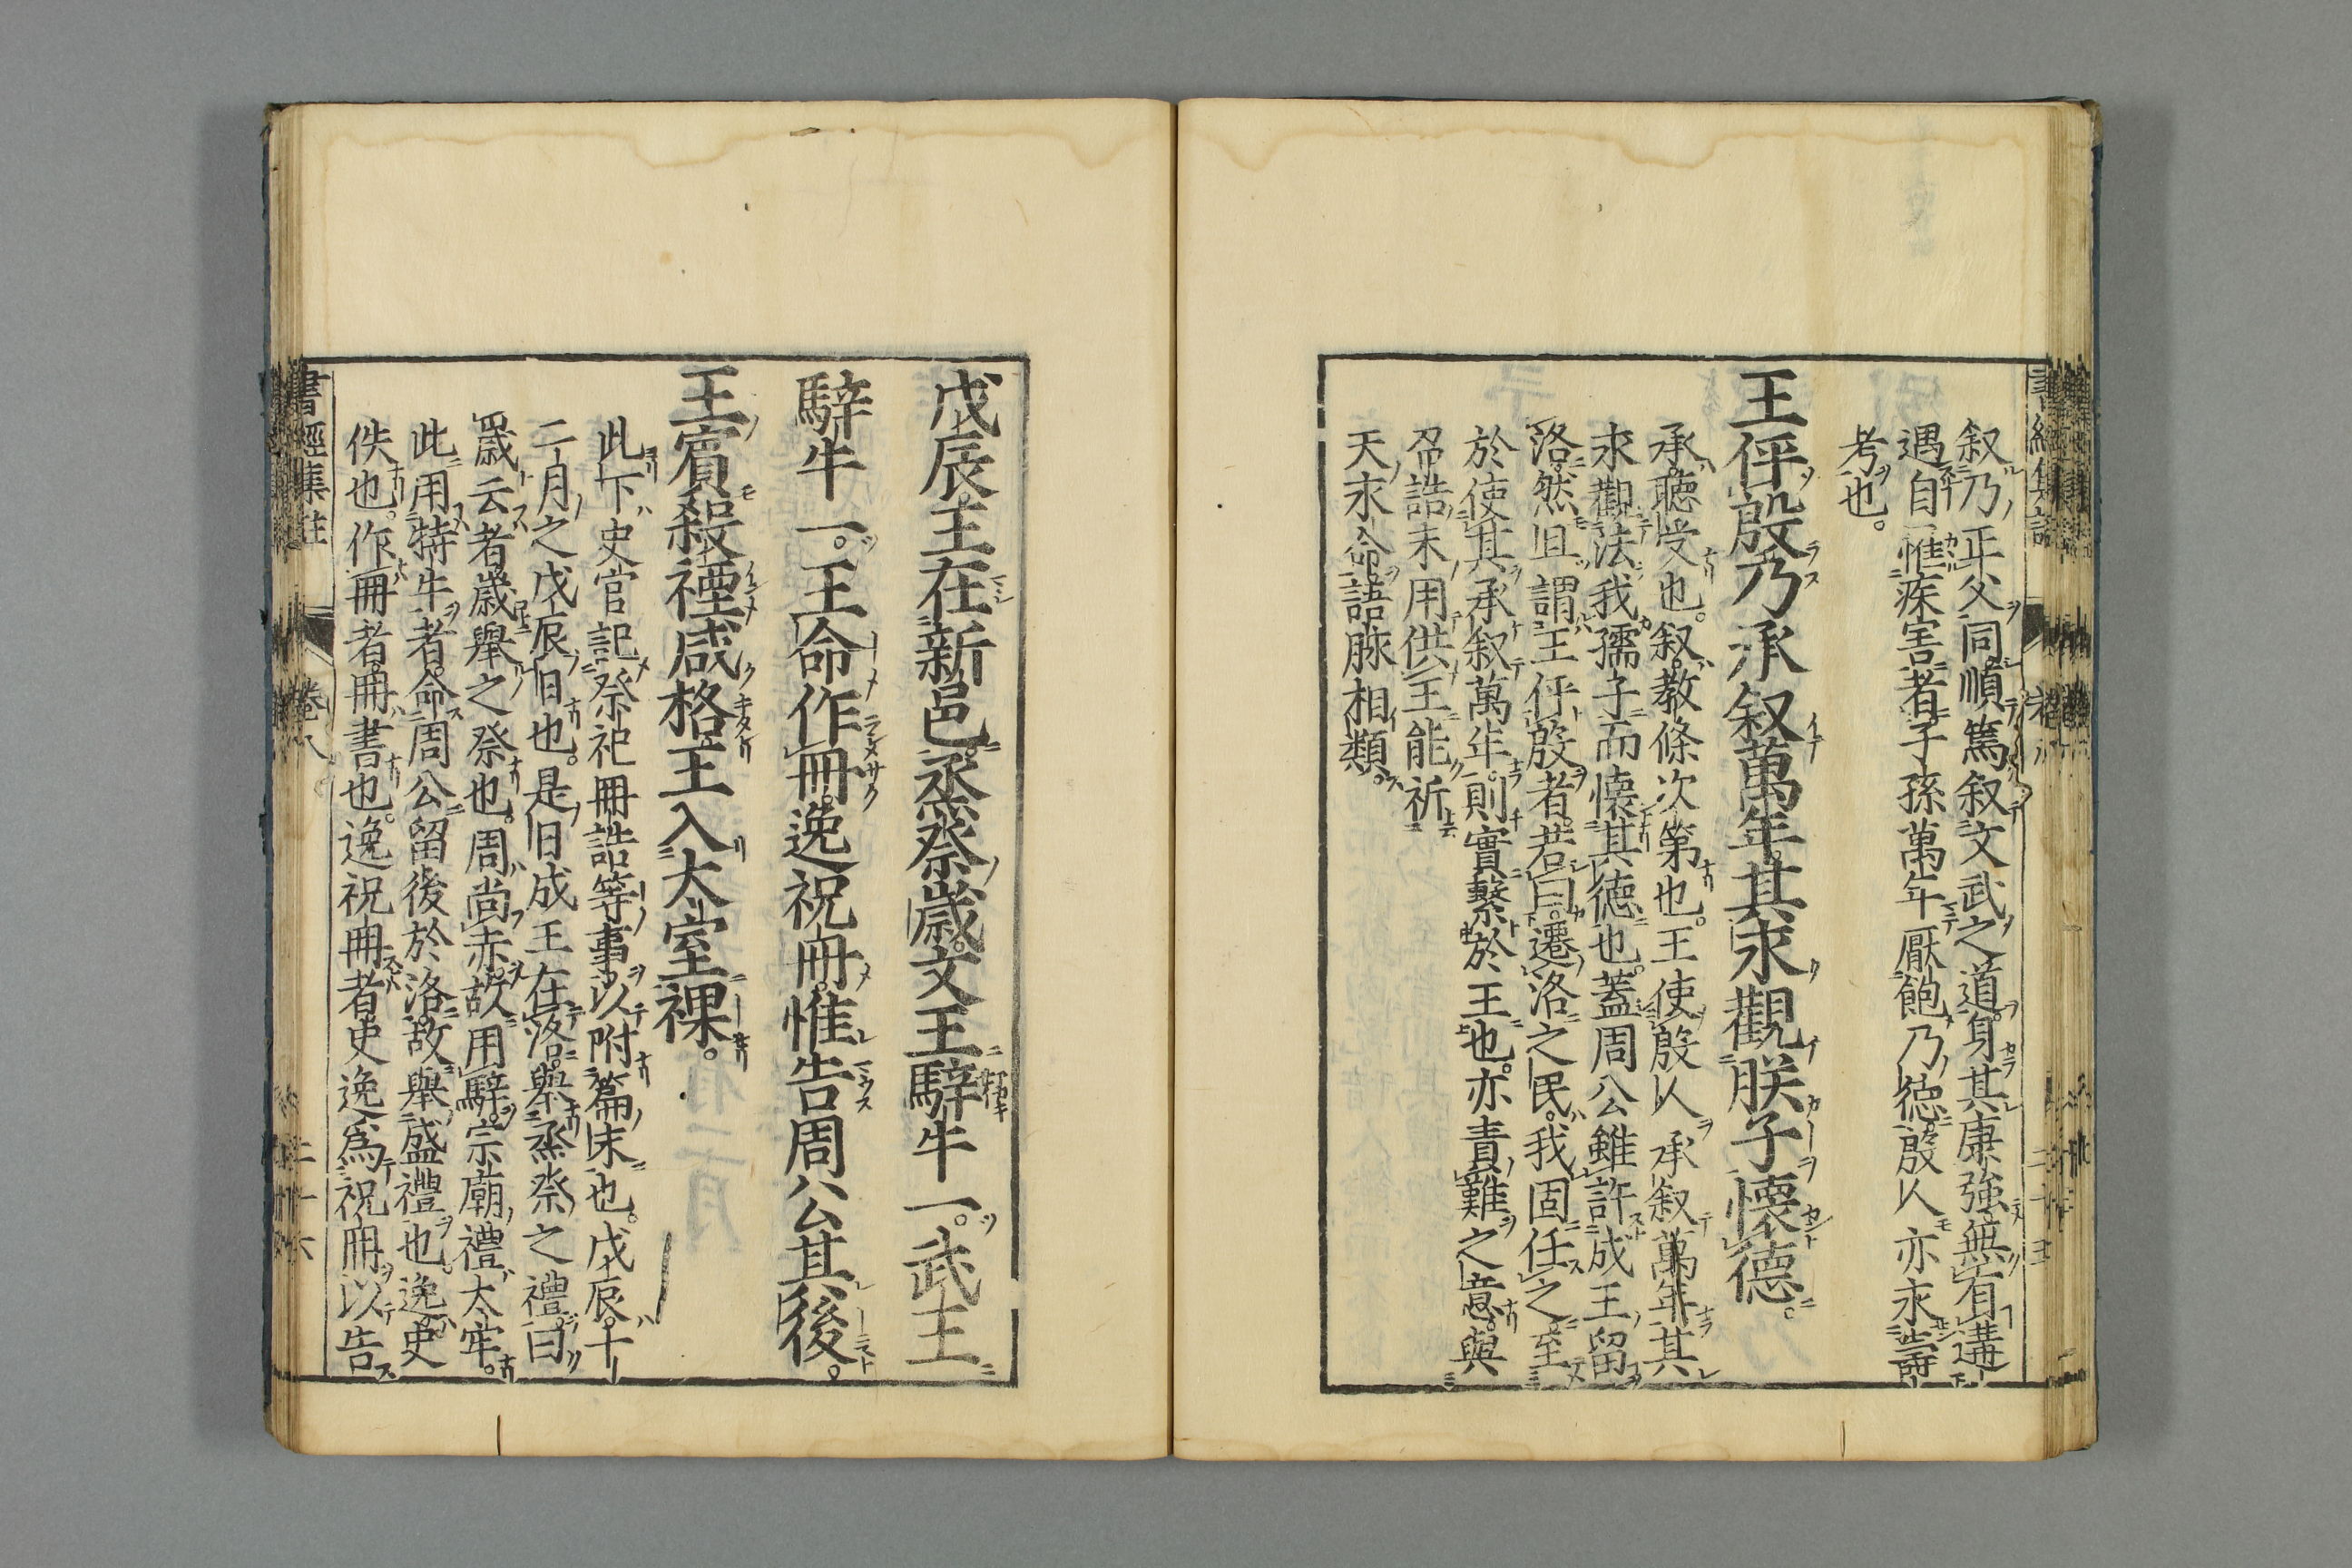 叙乃正父同順篤叙文武之道身其康強無有遘
遇自惟疾害者子孫萬年厭飽乃徳殷人亦永壽
考也。
王伻殷乃承叙萬年其永觀朕子懐徳。
承聴受也。叙教條次第也。王使殷人承叙萬年其
永觀法我孺子而懐其徳也蓋周公雖許成王留
洛然且謂王伻殷者若曰遷洛之民我固任之至
於使其承叙萬年則實繫於王也亦責難之意與
召誥末用供王能祈
天永命語脉相類。
戊辰王在新邑烝祭歳文王騂牛一。武王
騂牛一。王命作冊逸祝冊惟告周公其後。
王賓殺禋咸格王入太室祼。
此下史官記祭祀冊誥等事以附篇末也。戊辰十
二月之戊辰日也。是日成王在洛舉烝祭之禮曰
歳云者歳舉之祭也。周尚赤故用騂宗廟禮太牢。
此用特牛者命周公留後於洛故舉盛禮也。逸史
佚也。作冊者冊書也。逸祝冊者史逸爲祝冊以告
書經集註 巻八 二十六